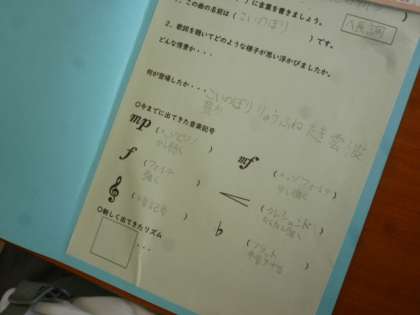 )に言葉を書きましょう。
1．この曲の名前は(こいのぼり)です。
2．歌詞を聴いてどのような様子が思い浮かびましたか。
どんな情景か・・・
何が登場したか・・・こいのぼり
〇今までに出てきた音楽記号
mp
(メッゾピアノ
少し弱く)
mf
(メッゾフォルテ
少し強く)
f
(フォルテ
強く)
(クレシェンド
だんだん強く)
(ト音記号)
♭
(フラット
半音下げる)
〇新しく出てきたリズム
・・・